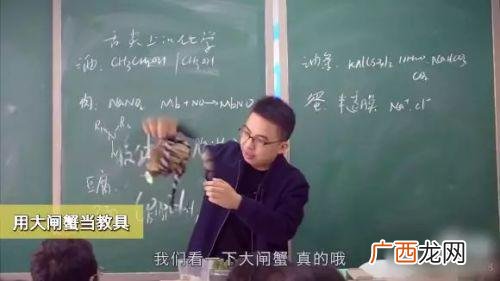 舌尖上的化学
酒: CH₃CH₂OH / CH₃OH
肉: NaNO₂ Mb + NO → MbNO
胶体
豆腐
油条: KAl(SO₄)₂ 12H₂O NaHCO₃
CO₂
蛋: 半透膜 Na⁺. Cl⁻
用大闸蟹当教具
我们看一下大闸蟹 真的哦
广西龙网